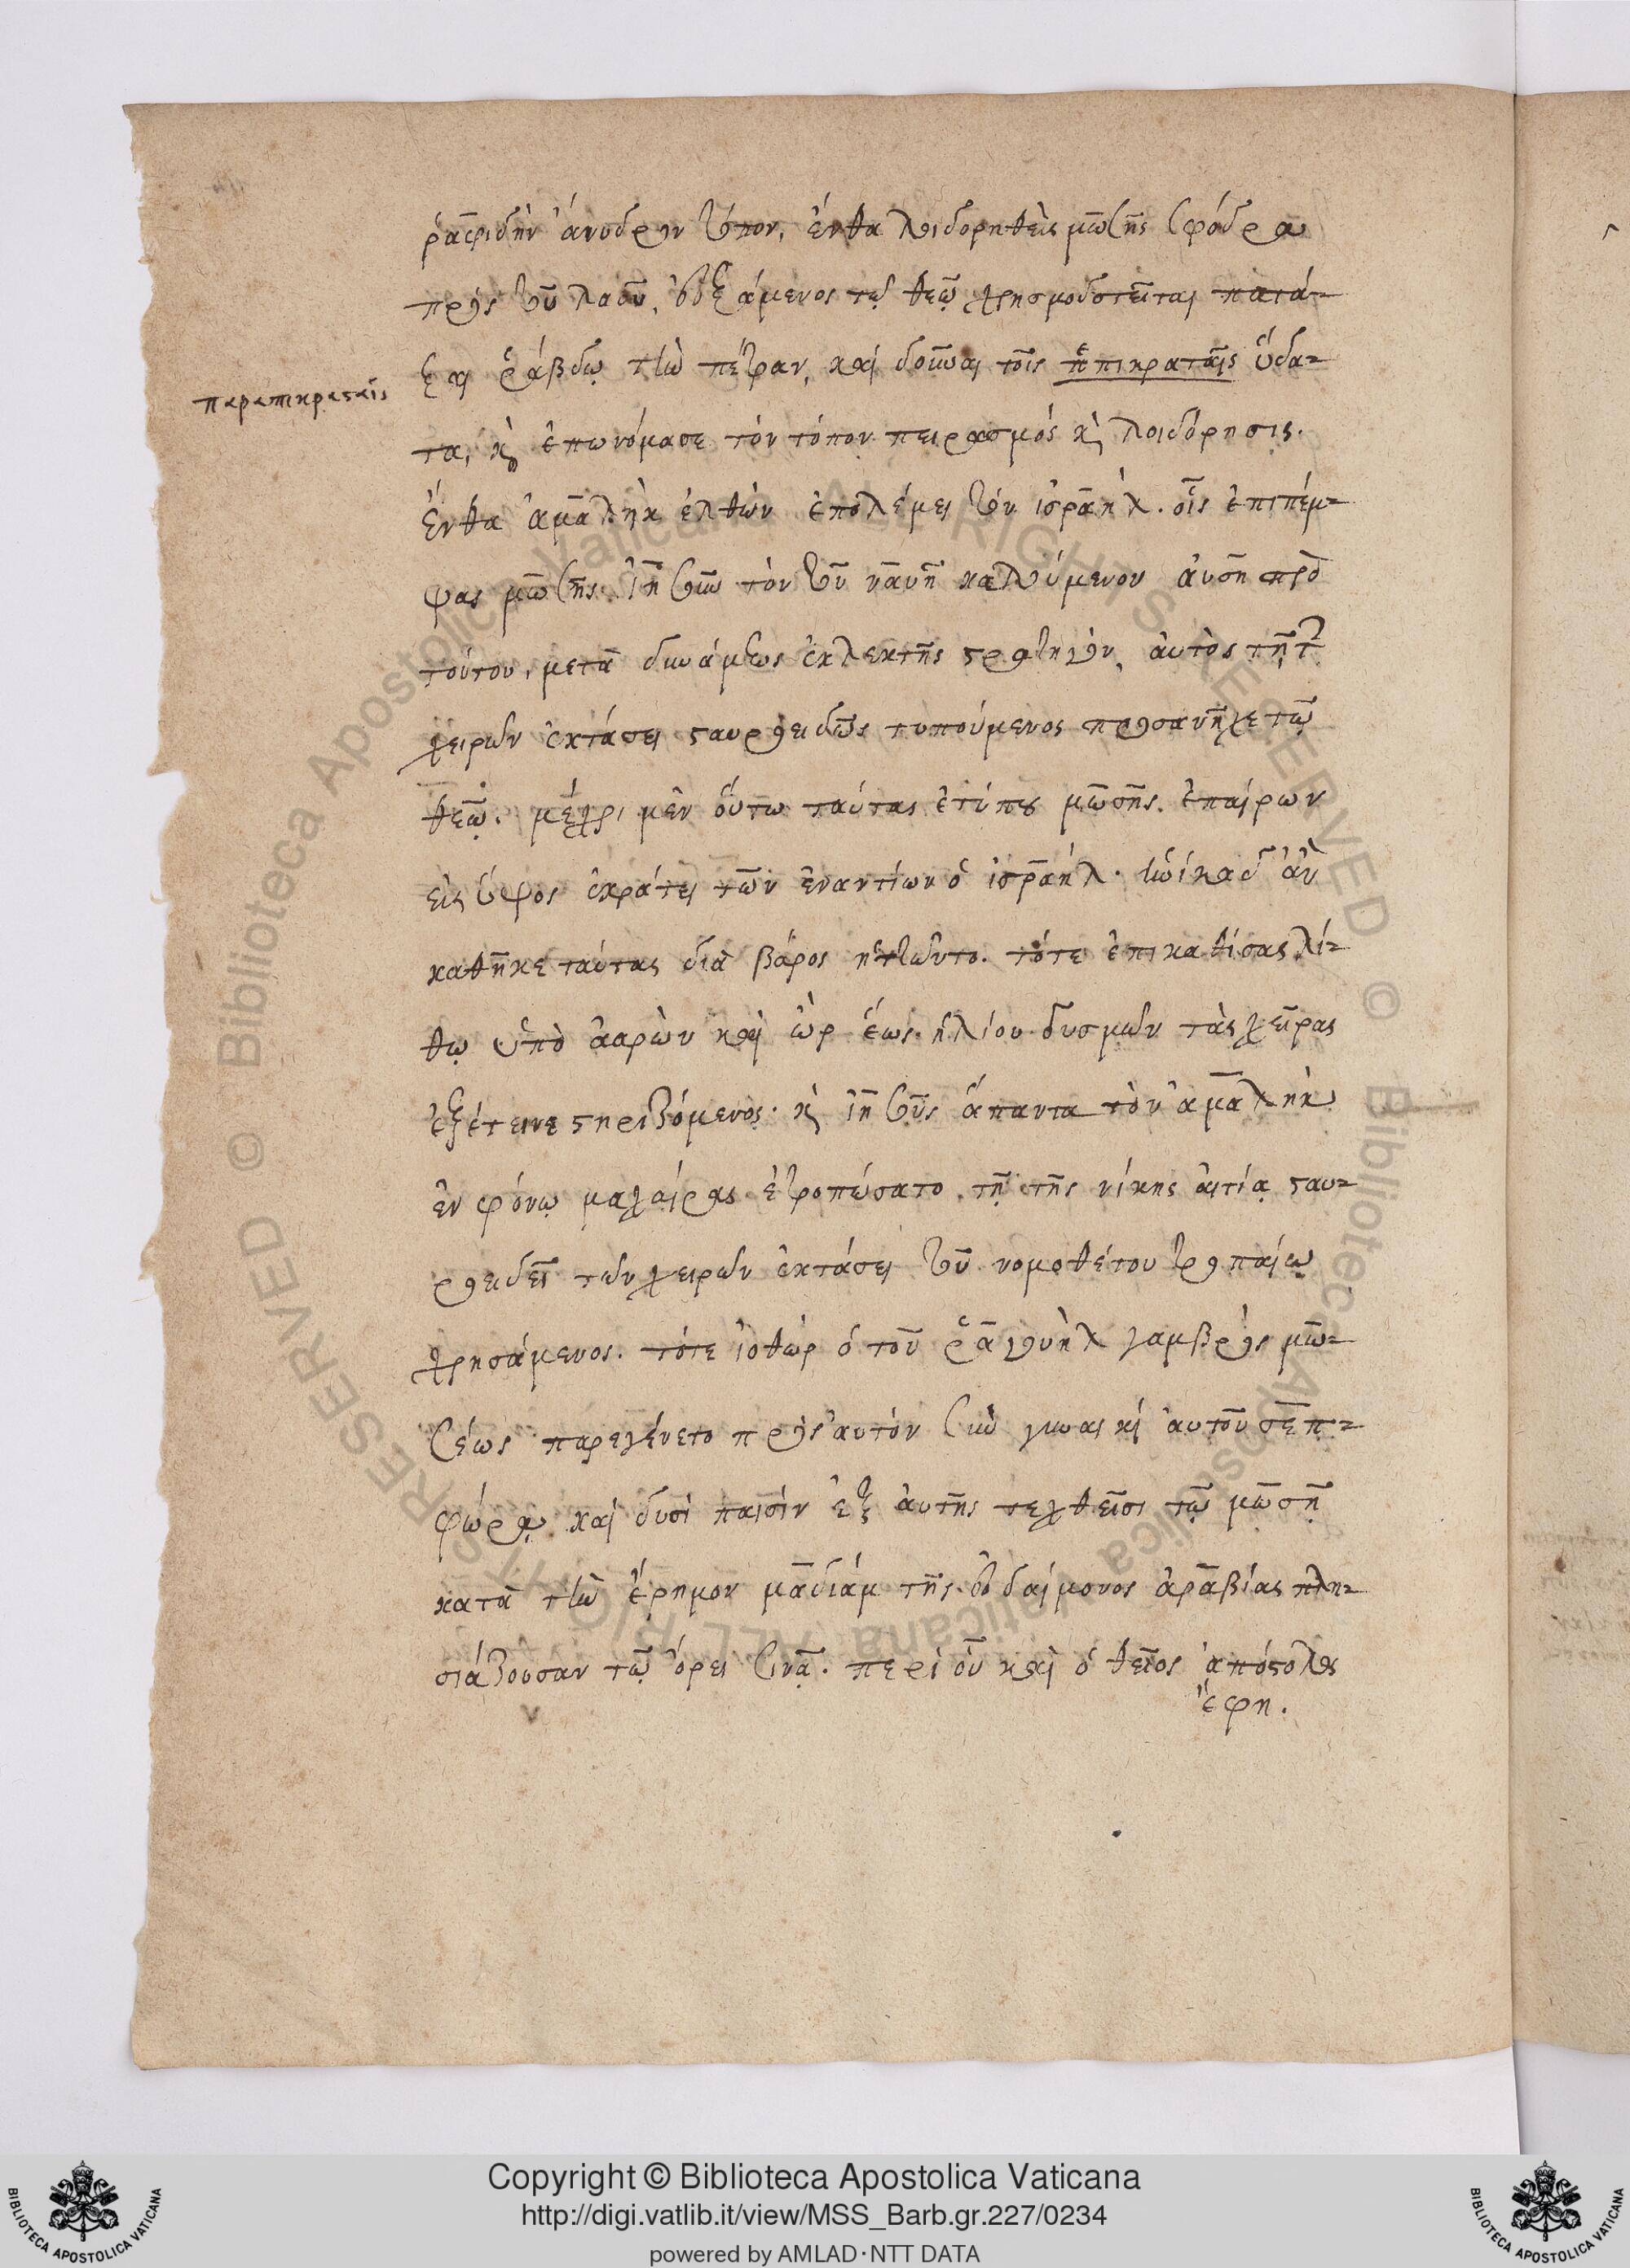 ῥαφιδὴν ἄνυδρον τόπον, ἔνθα λοιδορηθεὶς μωσῆς σφόδρα
πρὸς τοῦ λαοῦ, εὐξάμενος τῷ θεῷ χρησμοδοτεῖται πατά-
ξαι ῥάβδῳ τὴν πέτραν, καὶ δοῦναι τοῖς ππικραταῖς ὕδα-
παραπικραταῖς
τα, κỳ ἐπωνόμασε τὸν τόπον πειρασμός κỳ λοιδόρησις.
ἔνθα ἀμαλὴκ ἐλθὼν ἐπολέμει τὸν ἰσραήλ. οἷς ἐπιπέμ-
ψας μωσῆς ἰησοῦν τὸν τοῦ ναυῆ καλούμενον αὐσῆ πρὸ
τούτου, μετὰ δυνάμεως ἐκλεκτῆς στρατηγὸν, αὐτὸς τῇ τ
χειρῶν ἐκτάσει σταυροειδῶς τυπούμενος προσανῆγε τῷ
θεῷ. μέχρι μὲν οὕτω ταύτας ἐτύπου μωσῆς. ἐπαίρων
εἰς ὕψος ἐκράτει τῶν ἐναντίων ὁ ἰσραήλ. ἡνίκα δ' ἂν
καθῆκε ταύτας διὰ βάρος ἡττῶντο. τότε ἐπικαθίσας λί-
θῳ ὑπὸ ἀαρὼν καὶ ὢρ ἕως ἡλίου δυσμῶν τὰς χεῖρας
ἐξέτεινε στηριζόμενος. κỳ ἰησοῦς ἅπαντα τὸν ἀμαλὴκ
ἐν φόνῳ μαχαίρας ἐτροπώσατο τῇ τῆς νίκης αἰτίᾳ σταυ-
ροειδεῖ τῶν χειρῶν ἐκτάσει τοῦ νομοθέτου τροπαίῳ
χρησάμενος. τότε ἰοθὼρ ὁ τοῦ ῥαγουὴλ γαμβρὸς μω-
σέως παρεγένετο πρὸς αὐτὸν σὺν γυναικί αὐτοῦ σεπ-
φώρᾳ καὶ δυσὶ παισὶν ἐξ αὐτῆς τεχθεῖσι τῷ μωσῇ
κατὰ τὴν ἔρημον μαδιάμ τῆς εὐδαίμονος ἀραβίας πλη-
σιάζουσαν τῷ ὄρει σινᾶ. περὶ οὗ καὶ ὁ θεῖος ἀπόστολος
ἔφη.
Copyright © Biblioteca Apostolica Vaticana
http://digi.vatlib.it/view/MSS_Barb.gr.227/0234
powered by AMLAD·NTT DATA